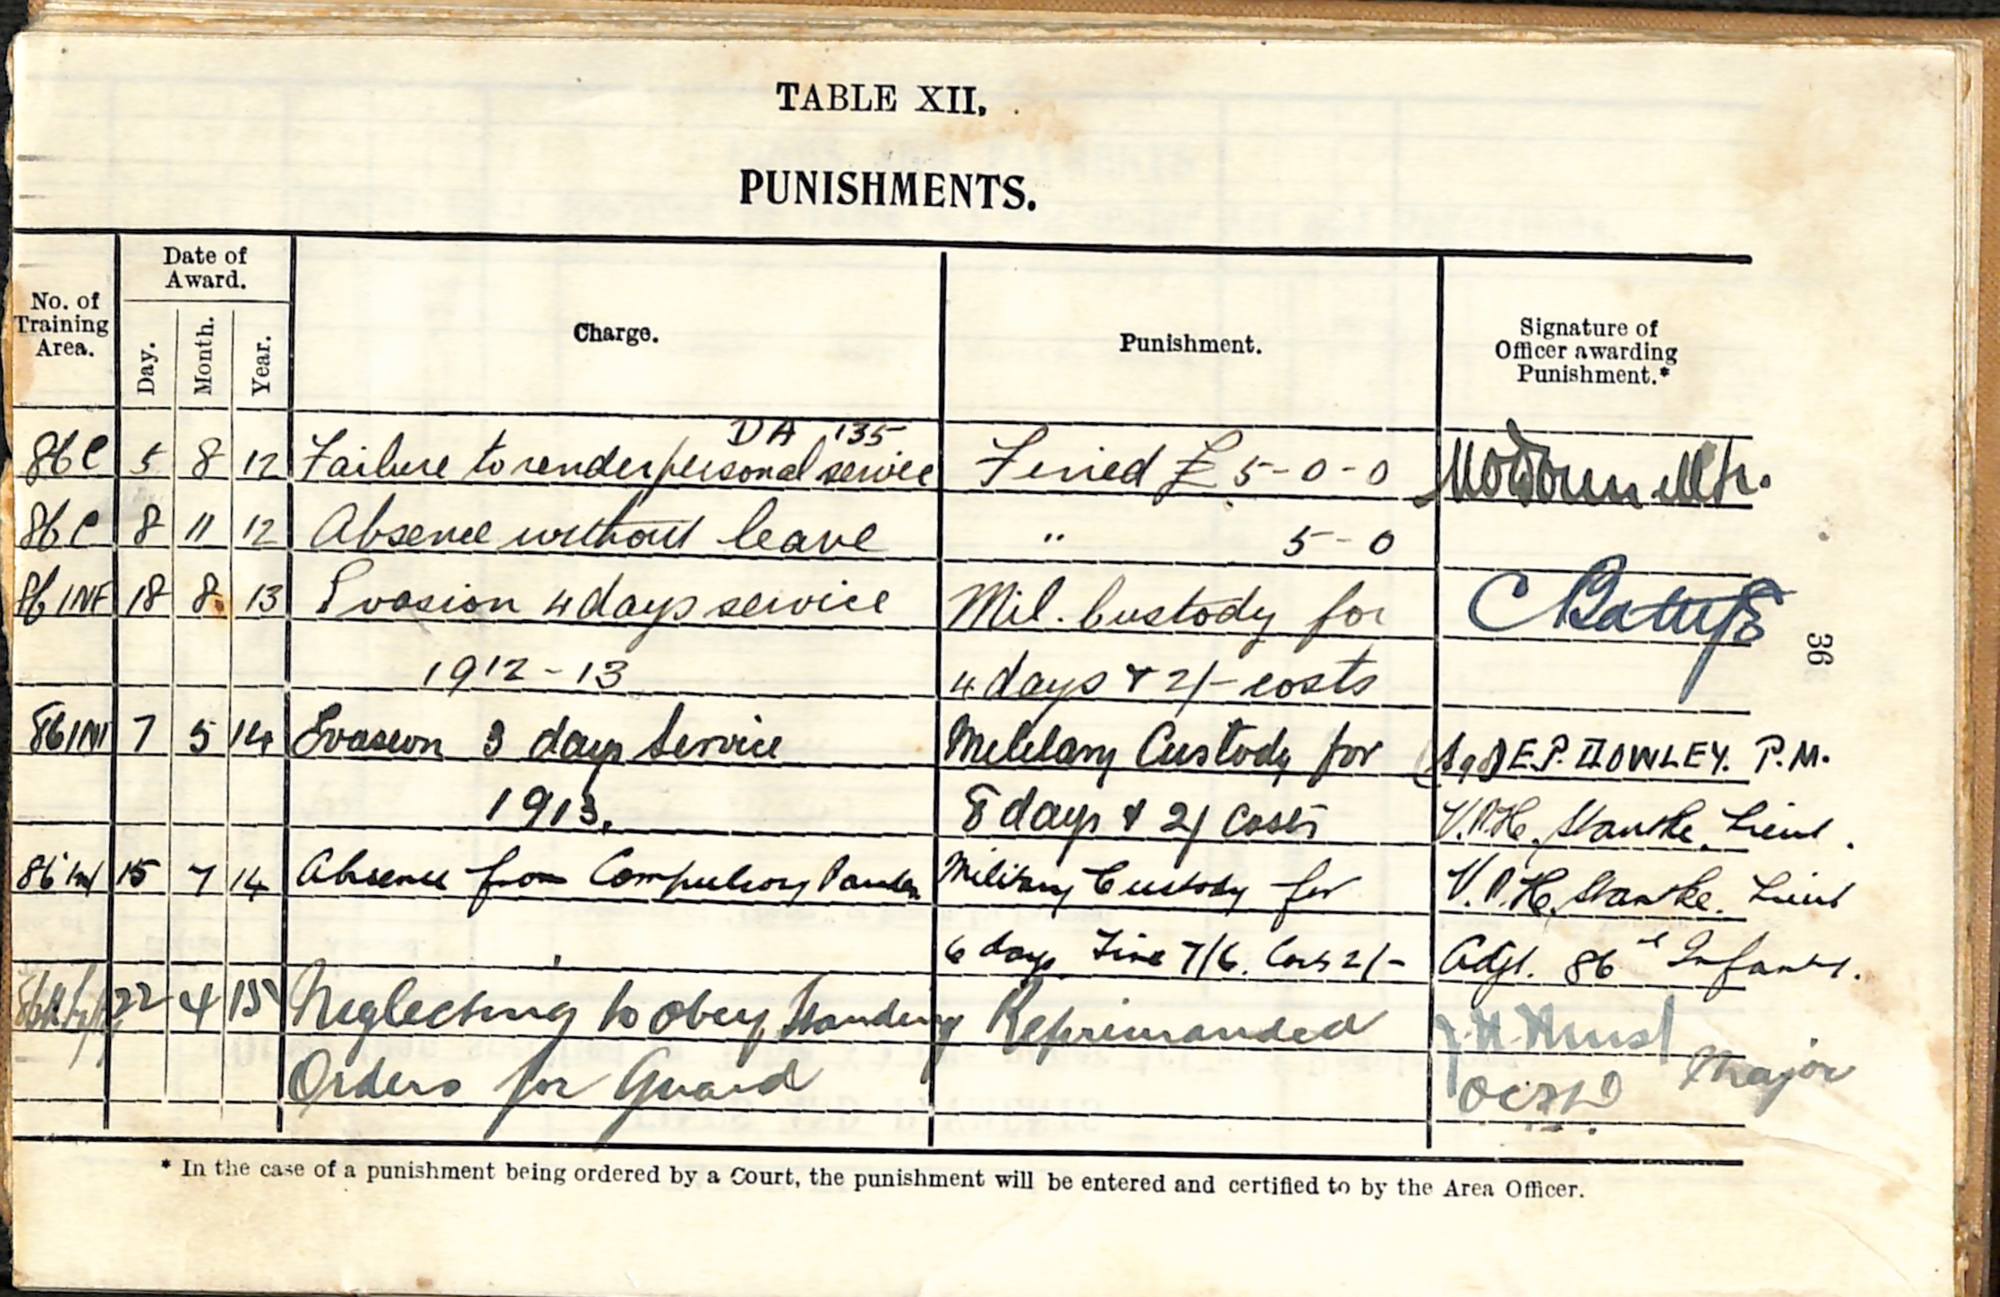 TABLE XII.
PUNISHMENTS.
No. of Training Area.
Date of Award.
Day. Month. Year.
Charge.
Punishment.
Signature of Officer awarding Punishment.*
DA 135
86C 5 8 12 Failure to render personal service Fined £5-0-0
86C 8 11 12 Absence without leave " 5-0
86 INF 18 8 13 Evasion 4 days service Mil. Custody for C Battye
1912-13 4 days & 2/- costs
86 INF 7 5 14 Evasion 3 days Service Military Custody for (Sgd) E.P. HOWLEY. P.M.
1913. 8 days & 2/ costs Lieut.
86 Inf 15 7 14 Absence from Compulsory Parades Military Custody for Lieut
6 days Fine 7/6. Costs 2/- Adjt. 86th Infantry.
22 4 15 Neglecting to obey Standing Reprimanded J H Hurst
Orders for Guard Major
* In the case of a punishment being ordered by a Court, the punishment will be entered and certified to by the Area Officer.
36